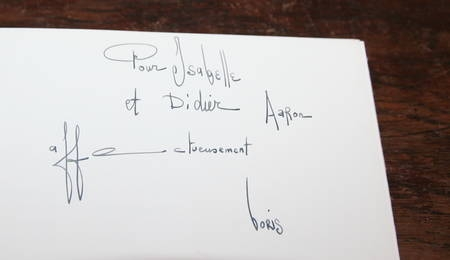 Pour Isabelle
et Didier Aaron
affectueusement
Boris